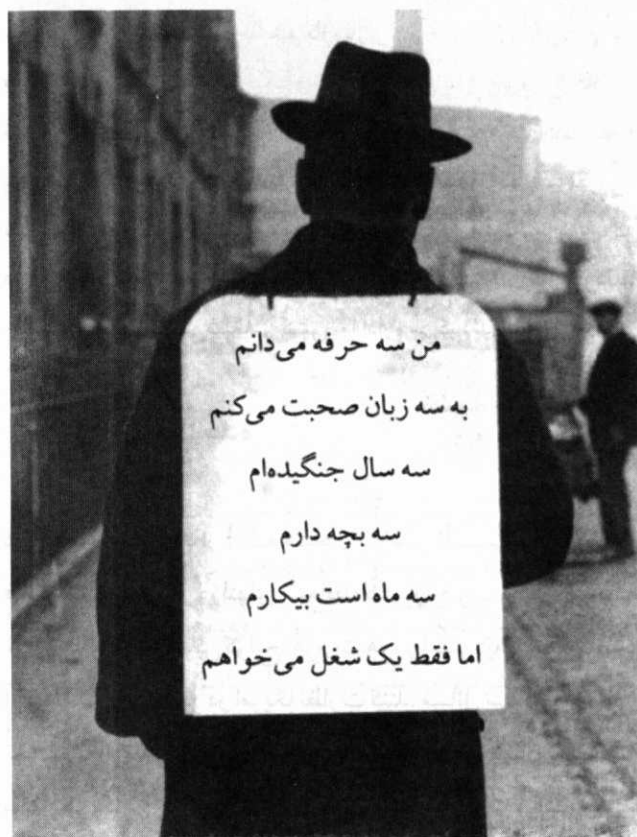 من سه حرفه می‌دانم
به سه زبان صحبت می‌کنم
سه سال جنگیده‌ام
سه بچه دارم
سه ماه است بیکارم
اما فقط یک شغل می‌خواهم